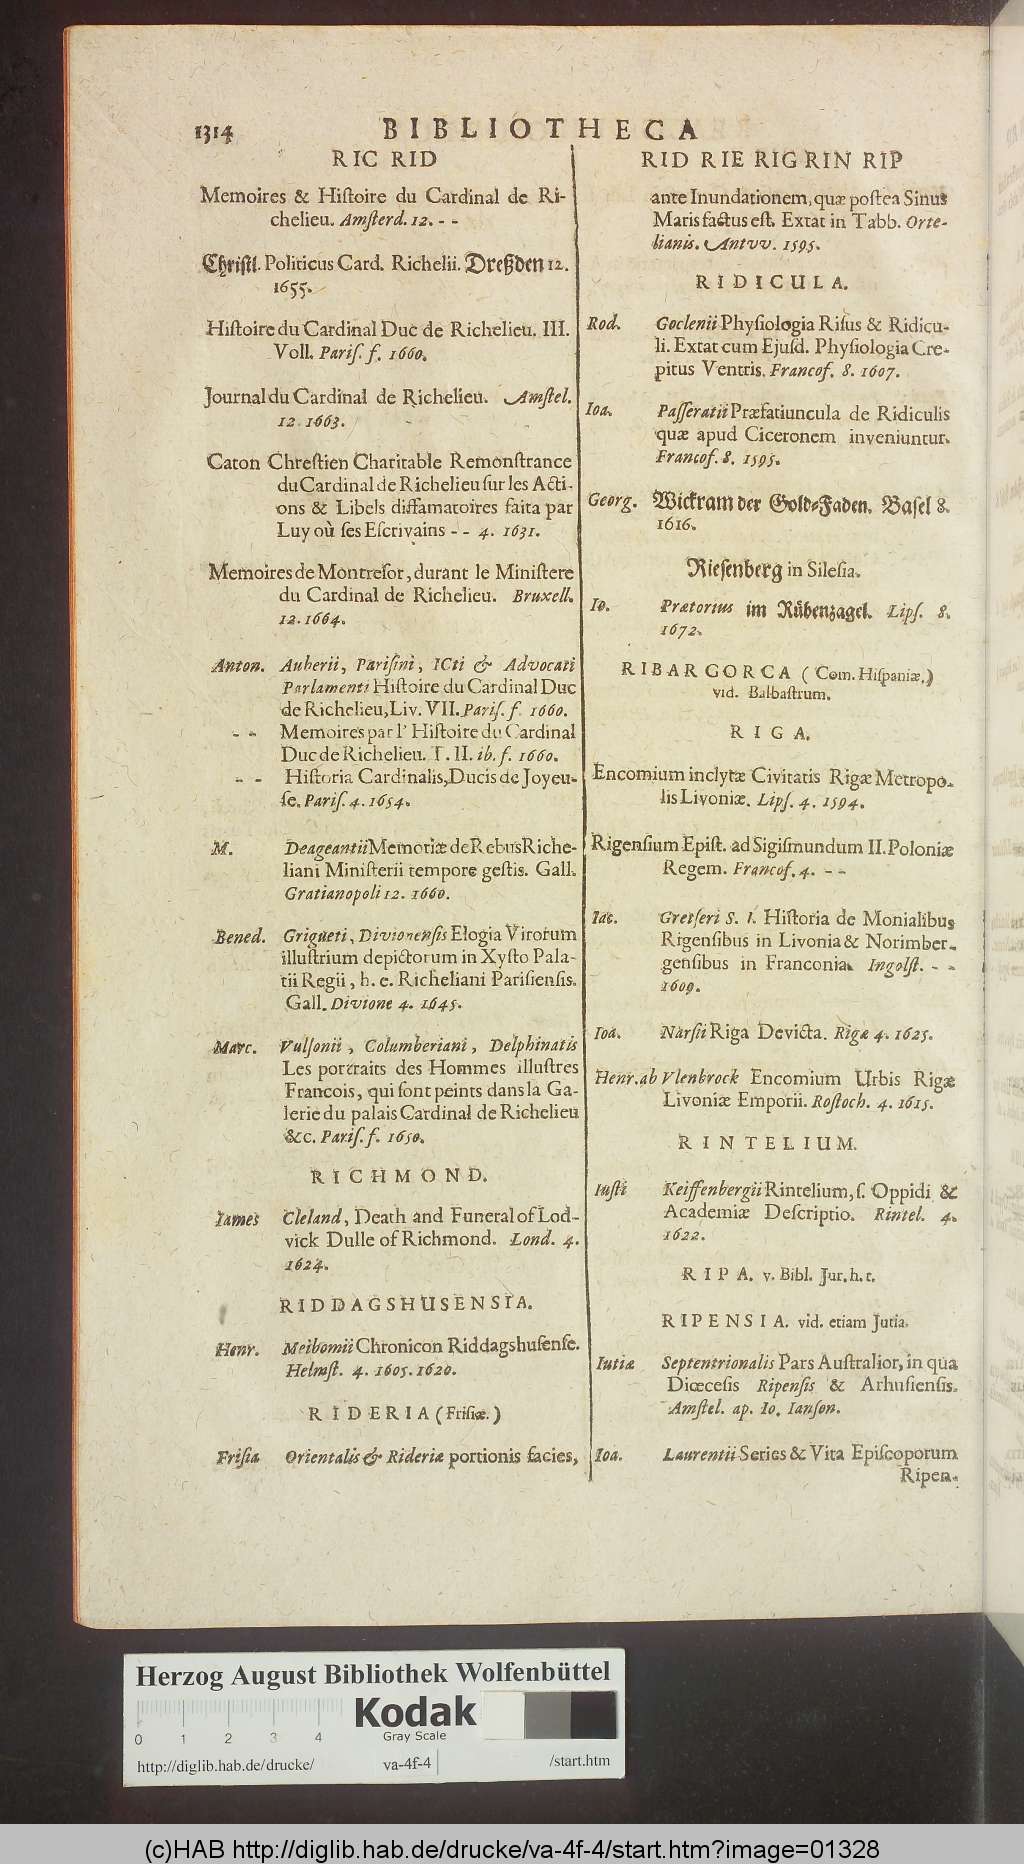 1314 BIBLIOTHECA
RIC RID
Memoires & Hiſtoire du Cardinal de Ri-
chelieu. Amſterd. 12. - -
Chriſtl. Politicus Card. Richelii. Dreßden 12.
1655.
Hiſtoire du Cardinal Duc de Richelieu. III.
Voll. Pariſ. f. 1660.
Journal du Cardinal de Richelieu. Amſtel.
12. 1663.
Caton Chreſtien Charitable Remonſtrance
du Cardinal de Richelieu ſur les Acti-
ons & Libels diffamatoires faita par
Luy où ſes Eſcrivains - - 4. 1631.
Memoires de Montreſor, durant le Miniſtere
du Cardinal de Richelieu. Bruxell.
12. 1664.
Anton. Auberii, Pariſini, ICti & Advocati
Parlamenti Hiſtoire du Cardinal Duc
de Richelieu, Liv. VII. Pariſ. f. 1660.
- - Memoires par l' Hiſtoire du Cardinal
Duc de Richelieu. T. II. ib. f. 1660.
- - Hiſtoria Cardinalis, Ducis de Joyeu-
ſe. Pariſ. 4. 1654.
M. Deageantii Memoriæ de Rebus Riche-
liani Miniſterii tempore geſtis. Gall.
Gratianopoli 12. 1660.
Bened. Grigueti, Divionenſis Elogia Virorum
illuſtrium depictorum in Xyſto Pala-
tii Regii, h. e. Richeliani Pariſienſis.
Gall. Divione 4. 1645.
Marc. Vulſonii, Columberiani, Delphinatis
Les portraits des Hommes illuſtres
Francois, qui ſont peints dans la Ga-
lerie du palais Cardinal de Richelieu
&c. Pariſ. f. 1650.
RICHMOND.
Iames Cleland, Death and Funeral of Lod-
vick Dulle of Richmond. Lond. 4.
1624.
RIDDAGSHUSENSIA.
Henr. Meibomii Chronicon Riddagshuſenſe.
Helmſt. 4. 1605. 1620.
RIDERIA (Friſiæ.)
Friſiæ Orientalis & Rideriæ portionis facies,
RID RIE RIG RIN RIP
ante Inundationem, quæ poſtea Sinus
Maris factus eſt. Extat in Tabb. Orte-
lianis. Antvv. 1595.
RIDICULA.
Rod. Goclenii Phyſiologia Riſus & Ridicu-
li. Extat cum Ejuſd. Phyſiologia Cre-
pitus Ventris. Francof. 8. 1607.
Ioa. Paſſeratii Præfatiuncula de Ridiculis
quæ apud Ciceronem inveniuntur.
Francof. 8. 1595.
Georg. Wickram der Gold-Faden. Baſel 8.
1616.
Rieſenberg in Sileſia.
Io. Prætorius im Rübenzagel. Lipſ. 8.
1672.
RIBARGORCA (Com. Hiſpaniæ.)
vid. Balbaſtrum.
RIGA.
Encomium inclytæ Civitatis Rigæ Metropo-
lis Livoniæ. Lipſ. 4. 1594.
Rigenſium Epiſt. ad Sigiſmundum II. Poloniæ
Regem. Francof. 4. - -
Iac. Gretſeri S. I. Hiſtoria de Monialibus
Rigenſibus in Livonia & Norimber-
genſibus in Franconia. Ingolſt. - -
1609.
Ioa. Narſii Riga Devicta. Rigæ 4. 1625.
Henr. ab Vlenbrock Encomium Urbis Rigæ
Livoniæ Emporii. Roſtoch. 4. 1615.
RINTELIUM.
Iuſti Keiffenbergii Rintelium, ſ. Oppidi &
Academiæ Deſcriptio. Rintel. 4.
1622.
RIPA. v. Bibl. Jur. h. t.
RIPENSIA. vid. etiam Jutia.
Iutiæ Septentrionalis Pars Auſtralior, in qua
Diœceſis Ripenſis & Arhuſienſis.
Amſtel. ap. Io. Ianſon.
Ioa. Laurentii Series & Vita Epiſcoporum
Ripen-
Herzog August Bibliothek Wolfenbüttel
Kodak
Gray Scale
0 1 2 3 4
http://diglib.hab.de/drucke/ va-4f-4 /start.htm
(c)HAB http://diglib.hab.de/drucke/va-4f-4/start.htm?image=01328